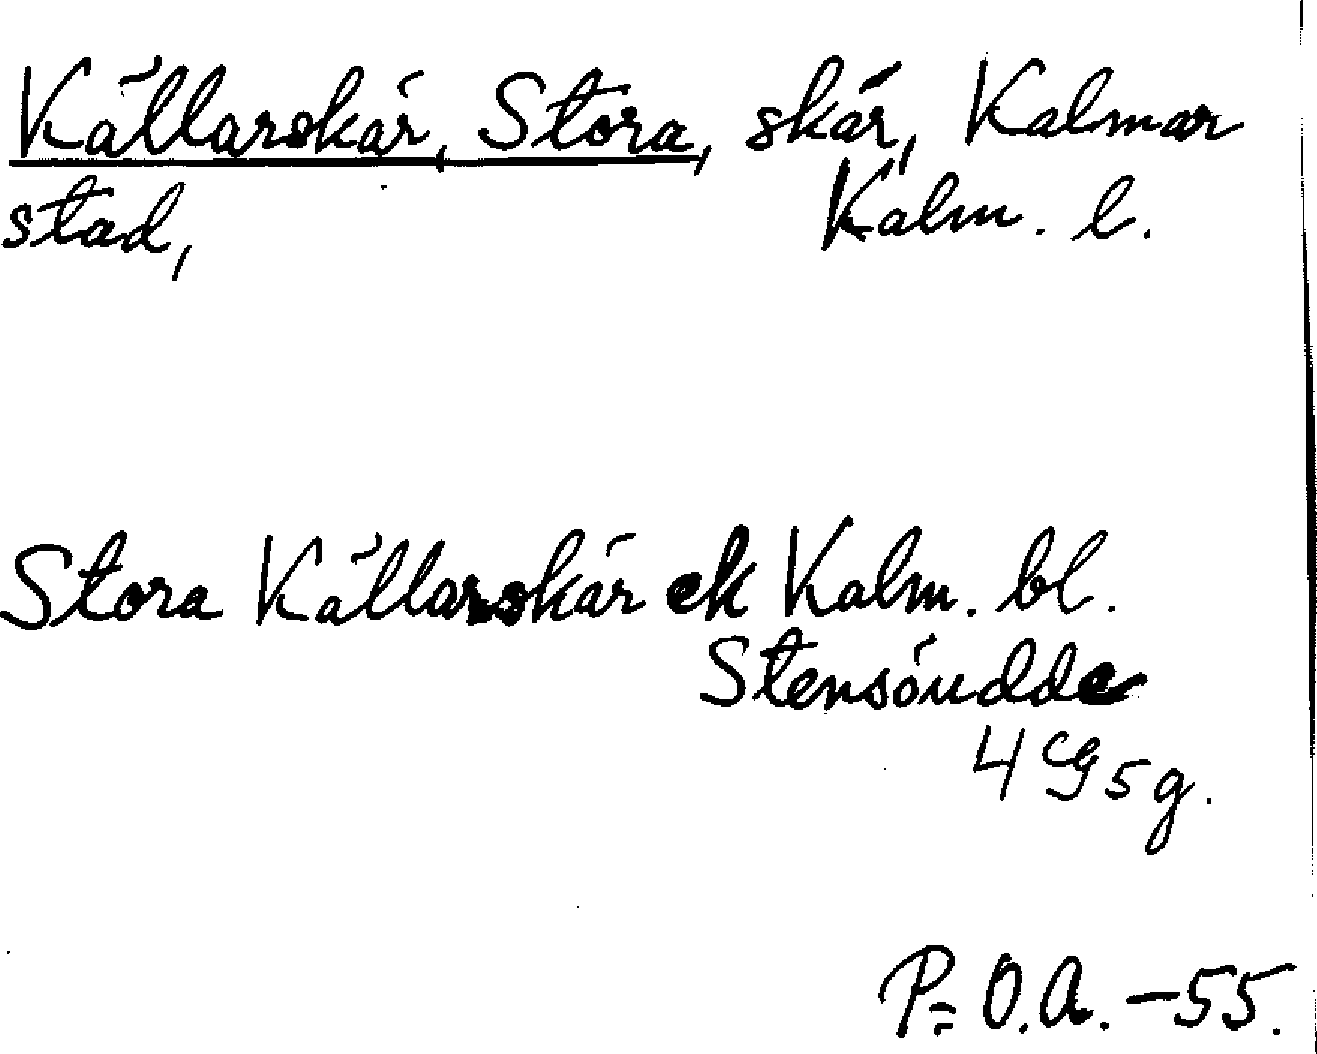 Källarskär, Stora, skär, Kalmar
stad, Kalm. l.
Stora Källarskär ek Kalm. bl.
Stensöudde
4 g 5 g.
P: O. A. – 55.